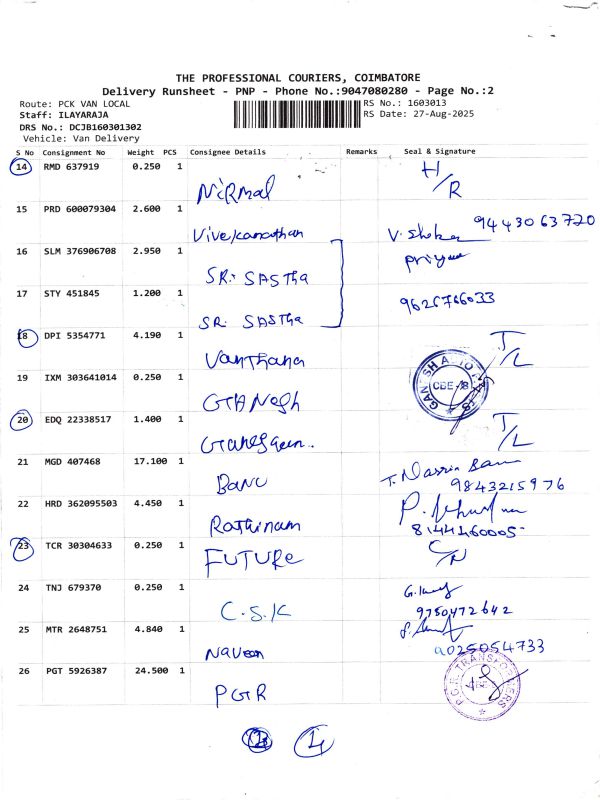 THE PROFESSIONAL COURIERS, COIMBATORE
Delivery Runsheet - PNP - Phone No.:9047080280 - Page No.:2
Route: PCK VAN LOCAL RS No.: 1603013
Staff: ILAYARAJA RS Date: 27-Aug-2025
DRS No.: DCJB160301302
Vehicle: Van Delivery
S No Consignment No Weight PCS Consignee Details Remarks Seal & Signature
14 RMD 637919 0.250 1 Nirmal H/R
15 PRD 600079304 2.600 1 Vivekanathan V. Shekar 9443063720
16 SLM 376906708 2.950 1 SRI SASTHA Priya
17 STY 451845 1.200 1 SRI SASTHA 9626766033
18 DPI 5354771 4.190 1 Vanthana T/L
19 IXM 303641014 0.250 1 GANESH AUTO CBE-18
20 EDQ 22338517 1.400 1 T/L
21 MGD 407468 17.100 1 9843215976
22 HRD 362095503 4.450 1 Rathinam 8144160005
23 TCR 30304633 0.250 1 FUTURE C/N
24 TNJ 679370 0.250 1 C.S.K 9750472642
25 MTR 2648751 4.840 1 Naveen 9025054733
26 PGT 5926387 24.500 1 PGR P.G.R. TRANSFORMERS